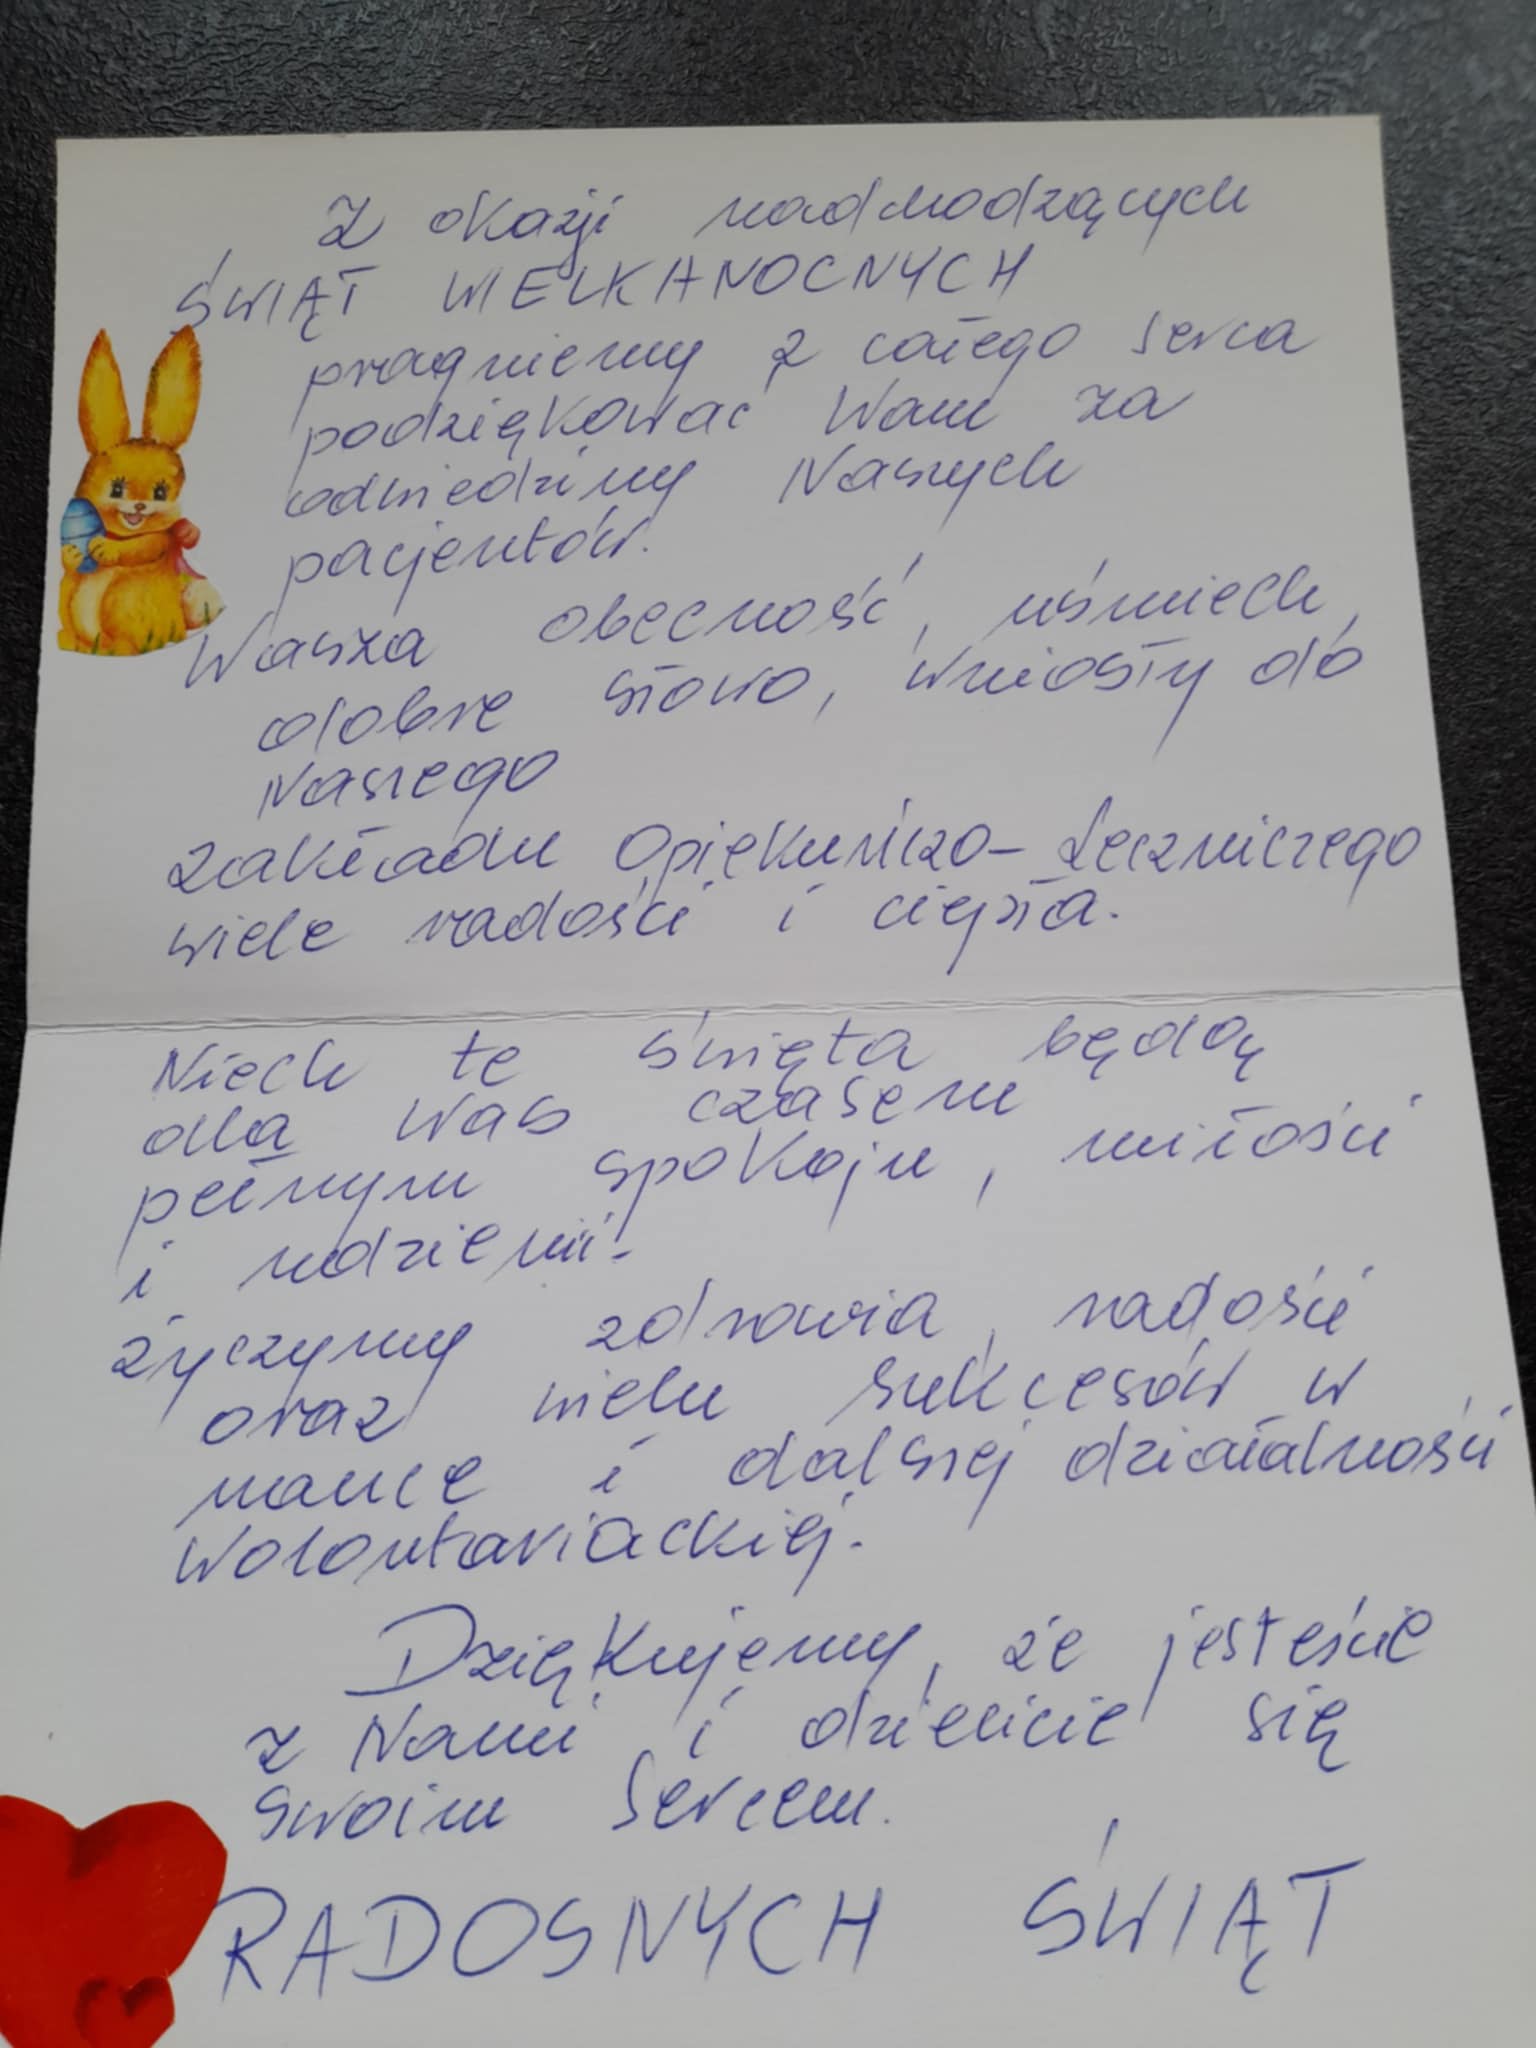 Z okazji nadchodzących
ŚWIĄT WIELKANOCNYCH
pragniemy z całego serca
podziękować Wam za
odwiedziny Naszych
pacjentów.
Wasza obecność, uśmiech,
dobre słowo, wniosły do
Naszego
Zakładu Opiekuńczo-Leczniczego
wiele radości i ciepła.
Niech te święta będą
dla Was czasem
pełnym spokoju, miłości
i nadziei.
Życzymy zdrowia, radości
oraz wielu sukcesów w
nauce i dalszej działalności
Wolontariackiej.
Dziękujemy, że jesteście
z Nami i dzielicie się
swoim sercem.
RADOSNYCH ŚWIĄT